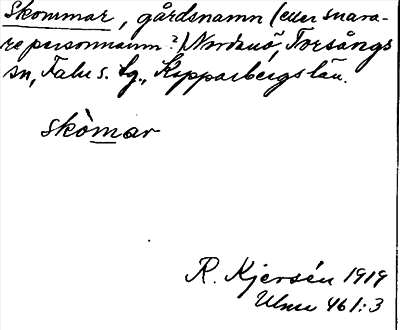 Skommar, gårdsnamn (eller snara-
re personnamn?) Nordsö, Torsångs
sn, Falu s. lg., Kopparbergs län.
skòmar
R. Kjersén 1919
Ulma 461:3